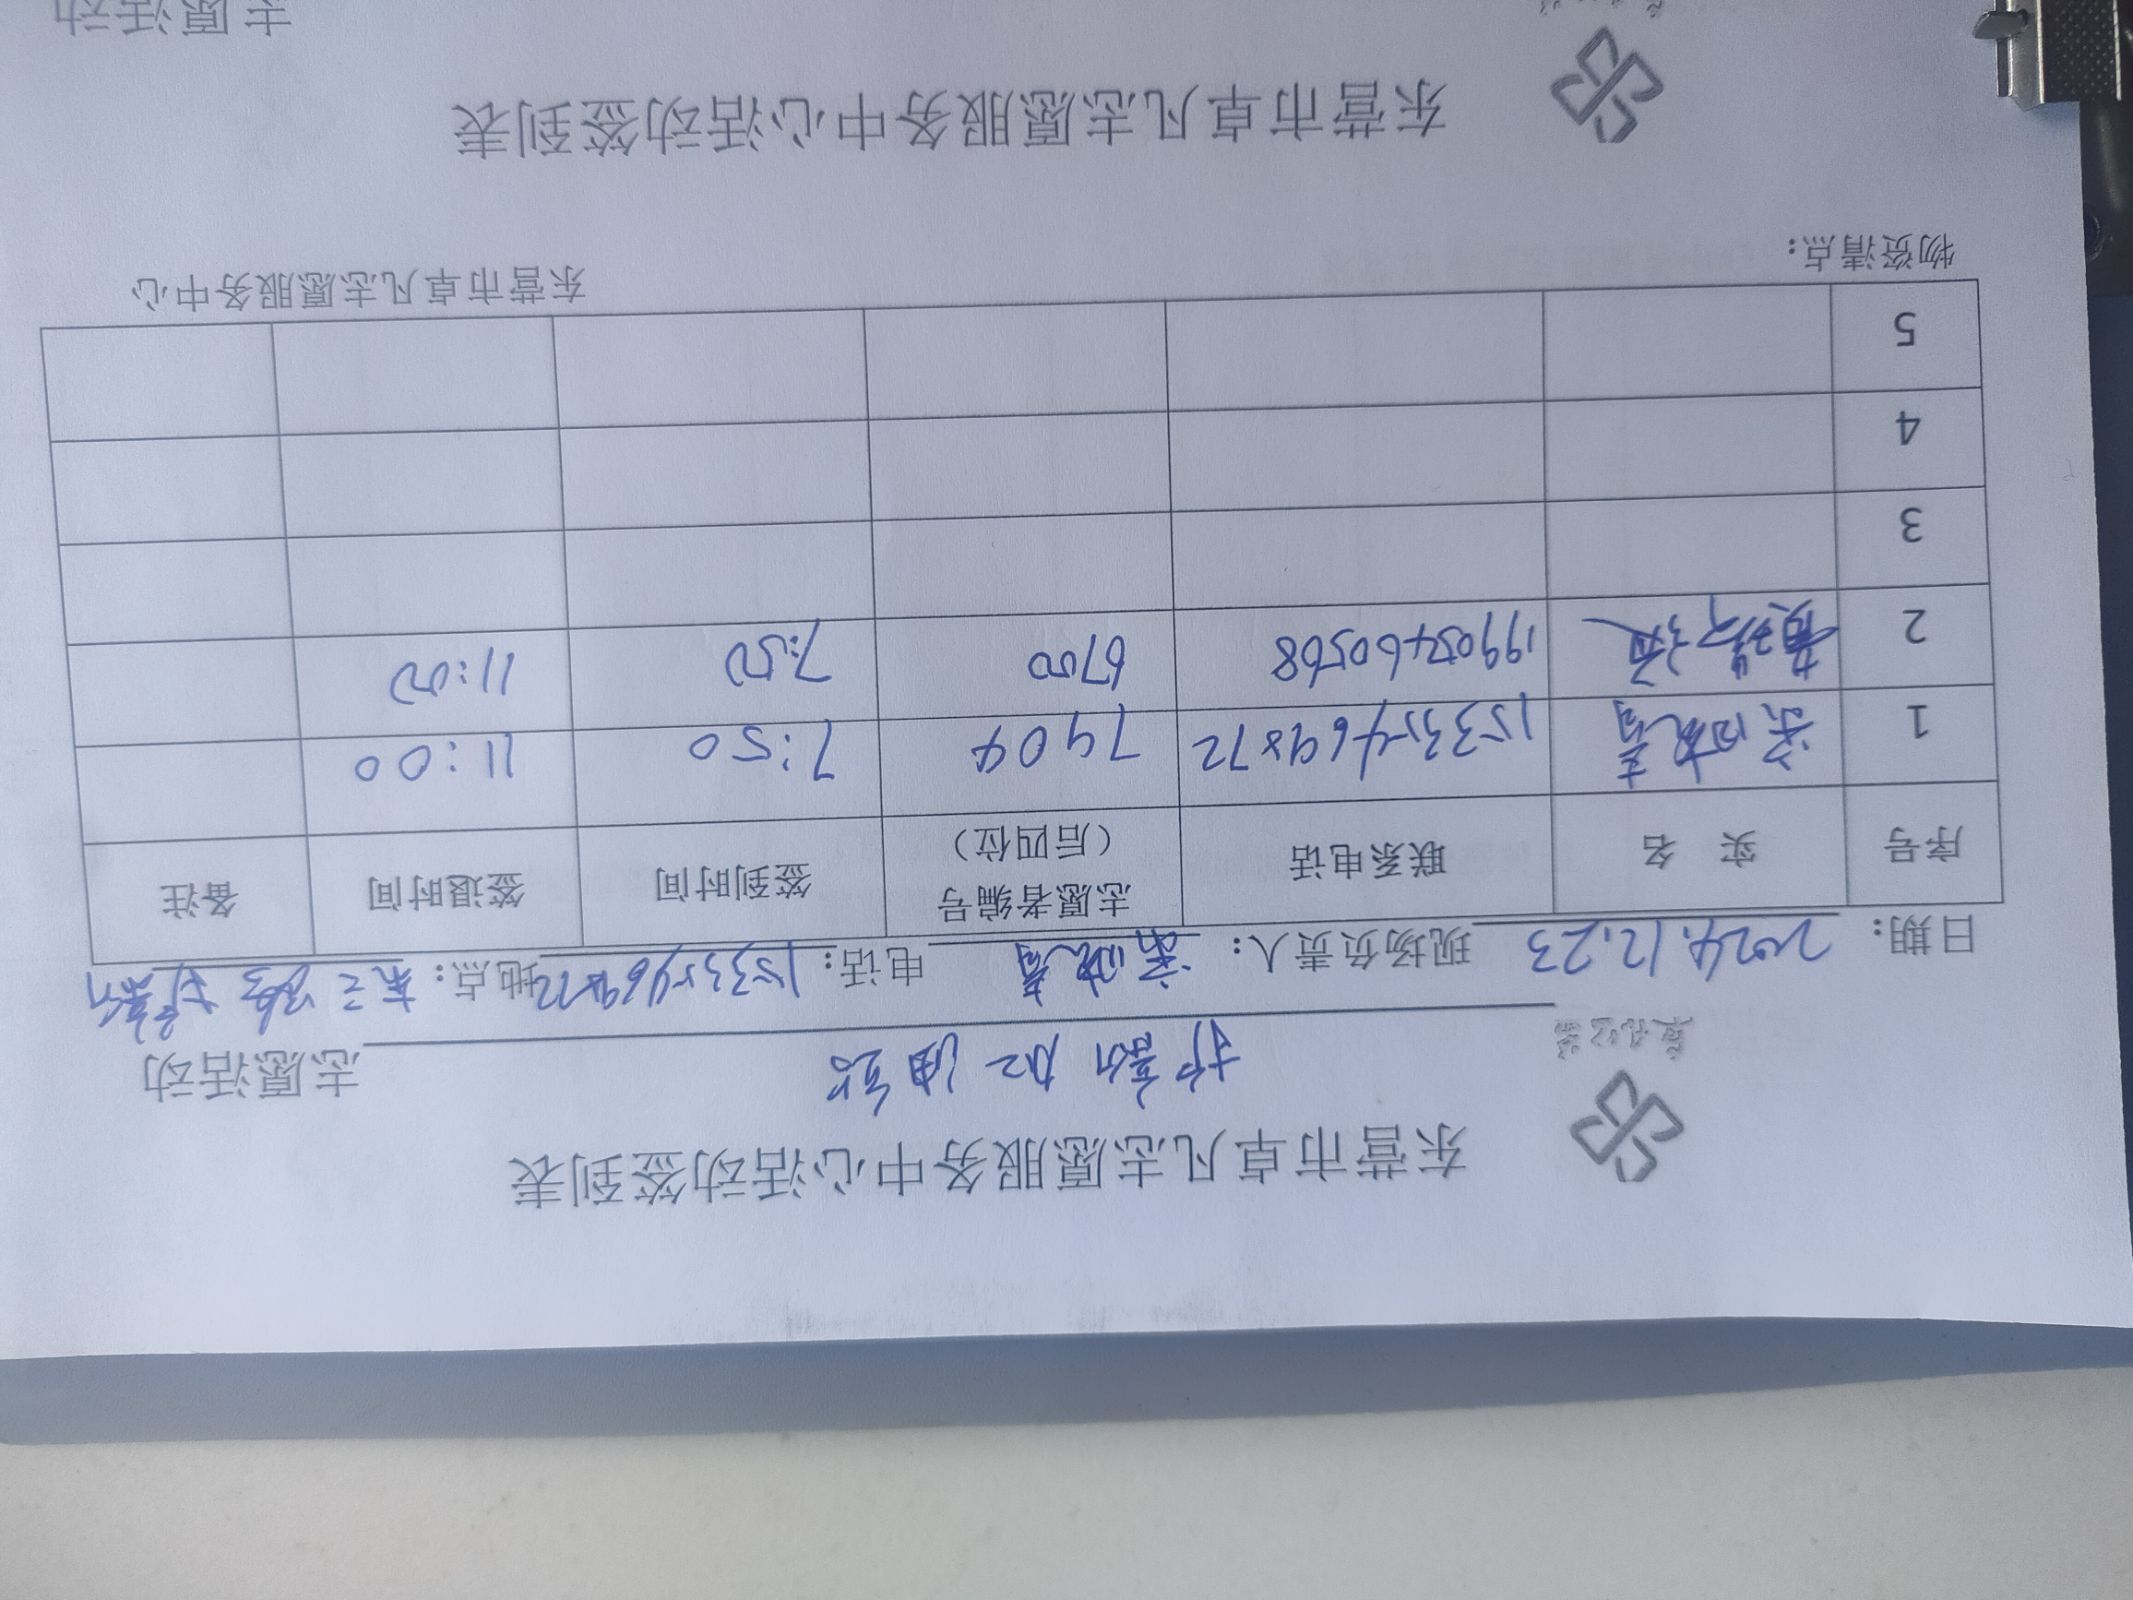 东营市卓凡志愿服务中心活动签到表
护蓟加油站 志愿活动
日期：2024.12.23 现场负责人： 电话：15335469872 地点：东三路
序号 实 名 联系电话 志愿者编号（后四位） 签到时间 签退时间 备注
1 15335469872 7904 7:50 11:00
2 19905460568 6700 7:50 11:00
3
4
5
物资清点： 东营市卓凡志愿服务中心
东营市卓凡志愿服务中心活动签到表
志愿活动